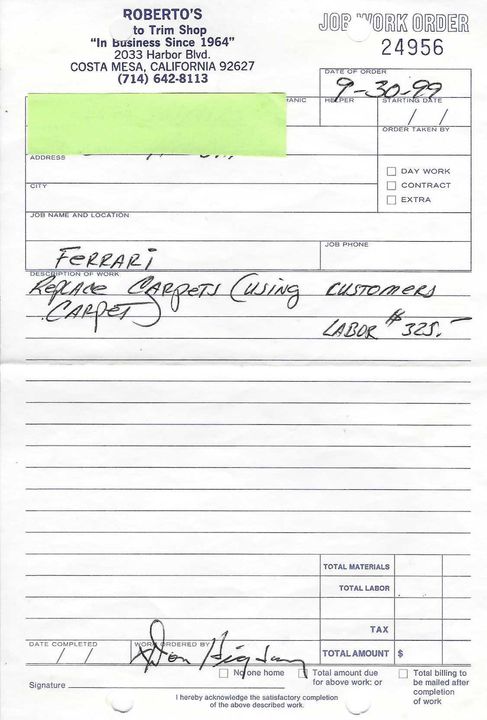 ROBERTO'S
to Trim Shop
"In Business Since 1964"
2033 Harbor Blvd.
COSTA MESA, CALIFORNIA 92627
(714) 642-8113
JOB WORK ORDER
24956
DATE OF ORDER
9-30-99
HELPER
STARTING DATE
/ /
ORDER TAKEN BY
ADDRESS
DAY WORK
CITY
CONTRACT
EXTRA
JOB NAME AND LOCATION
FERRARI
JOB PHONE
DESCRIPTION OF WORK
REPLACE CARPETS (USING CUSTOMERS
CARPET)
LABOR $325.-
TOTAL MATERIALS
TOTAL LABOR
TAX
DATE COMPLETED
/ /
WORK ORDERED BY
Don
TOTAL AMOUNT $
No one home
Total amount due
for above work: or
Total billing to
be mailed after
completion
of work
Signature
I hereby acknowledge the satisfactory completion
of the above described work.